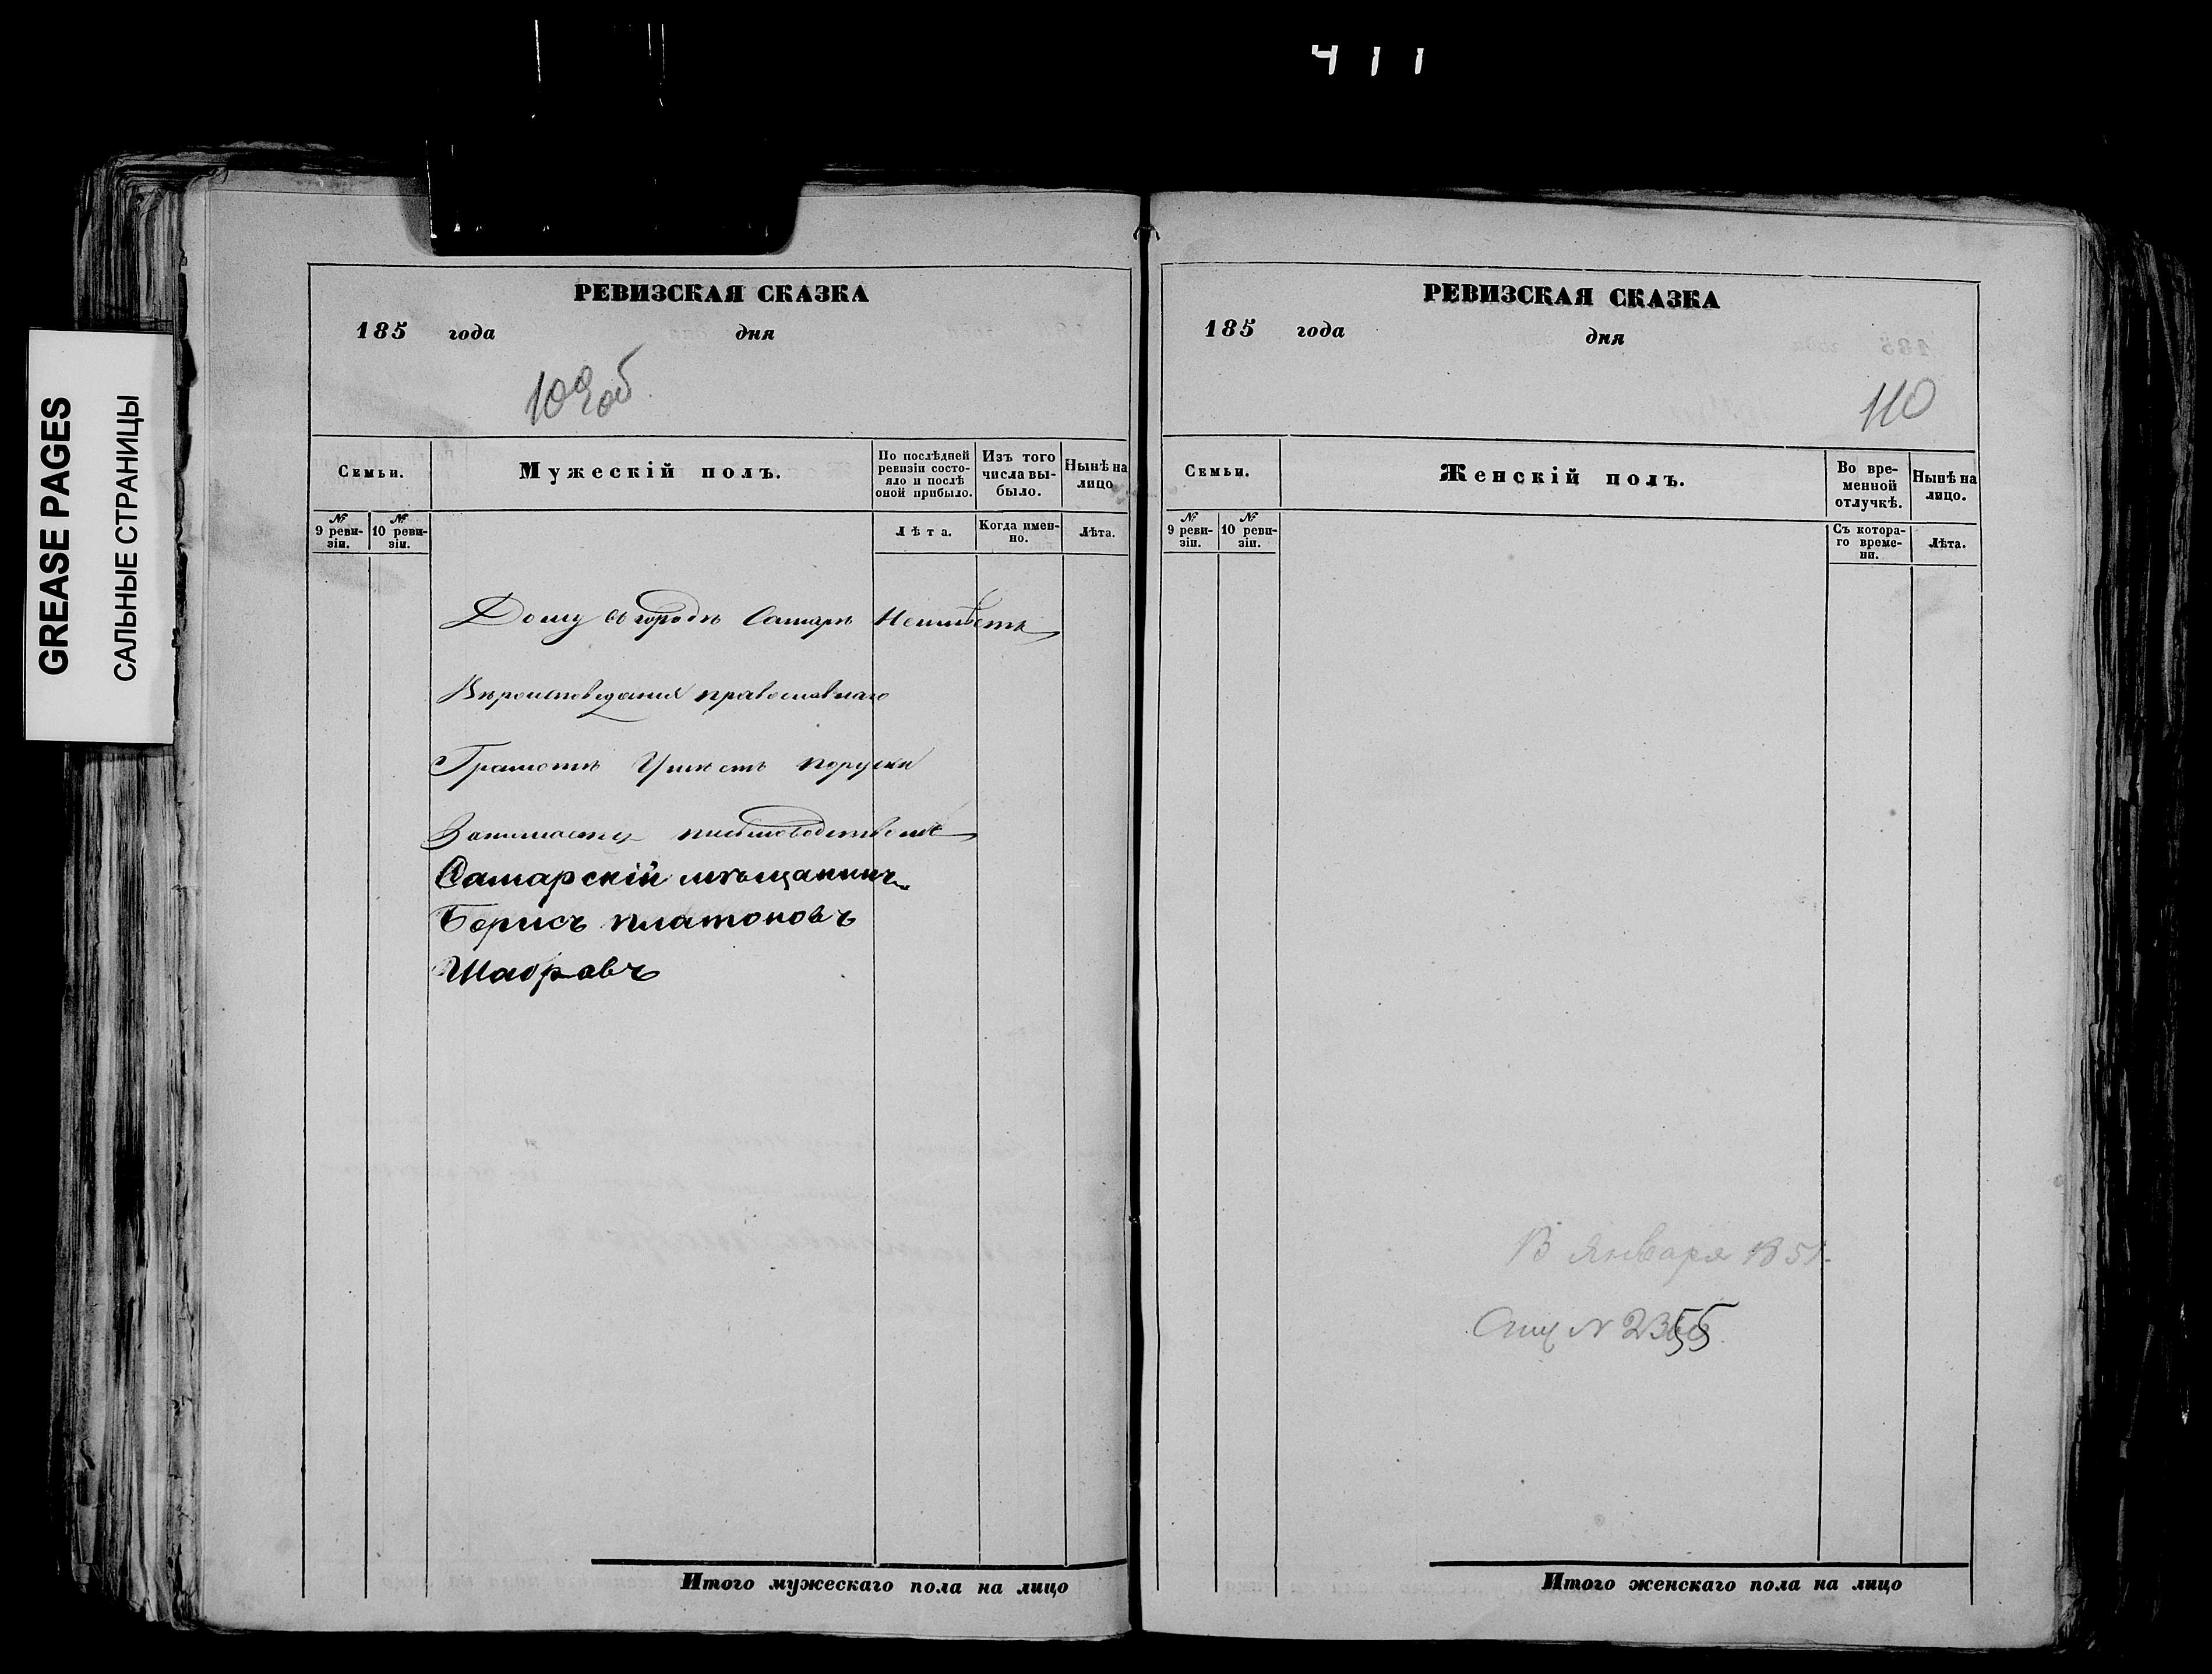 411
GREASE PAGES
САЛЬНЫЕ СТРАНИЦЫ
РЕВИЗСКАЯ СКАЗКА
185 года дня
109об
Семьи.
Мужескій полъ.
По послѣдней ревизіи состояло и послѣ оной прибыло.
Изъ того числа выбыло.
Нынѣ на лицо
№ 9 ревизіи.
№ 10 ревизіи.
Лѣта.
Когда именно.
Лѣта.
Дому въ городѣ Самарѣ Неимѣетъ
Вѣроисповеданія православнаго
Грамотѣ Умѣетъ поруски
Занимается письмоводствомъ
Самарскій мѣщанинъ
Борисъ платоновъ
Шаоровъ
Итого мужескаго пола на лицо
РЕВИЗСКАЯ СКАЗКА
185 года дня
110
Семьи.
Женскій полъ.
Во временной отлучкѣ.
Нынѣ на лицо.
№ 9 ревизіи.
№ 10 ревизіи.
Съ котораго времени.
Лѣта.
Января 185
N 2355
Итого женскаго пола на лицо